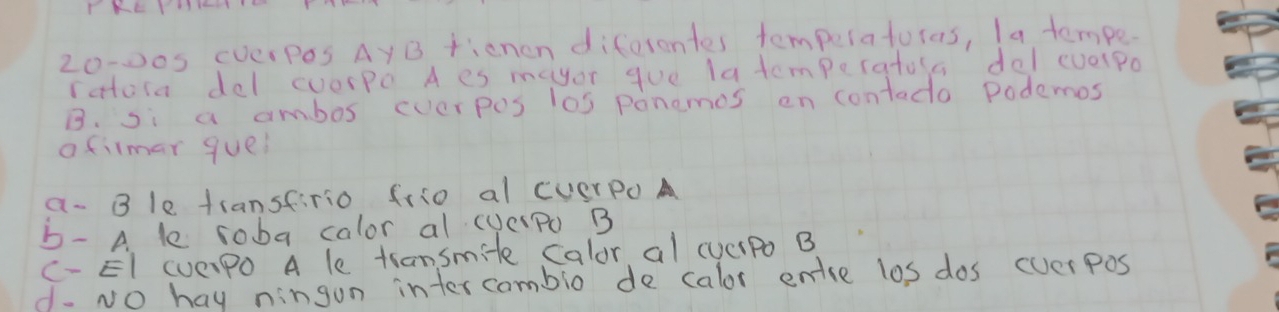 20-Dos cuerpos A y B tienen diferentes temperaturas, la tempe-
ratura del cuerpo A es mayor que la temperatura del cuerpo
B. si a ambos cuerpos los ponemos en contacto Podemos
afirmar que:
a- B le transfirio frio al cuerpo A
b- A le roba calor al cuerpo B
c- El cuerpo A le transmite calor al cuerpo B
d- No hay ningun intercambio de calor entre los dos cuerpos